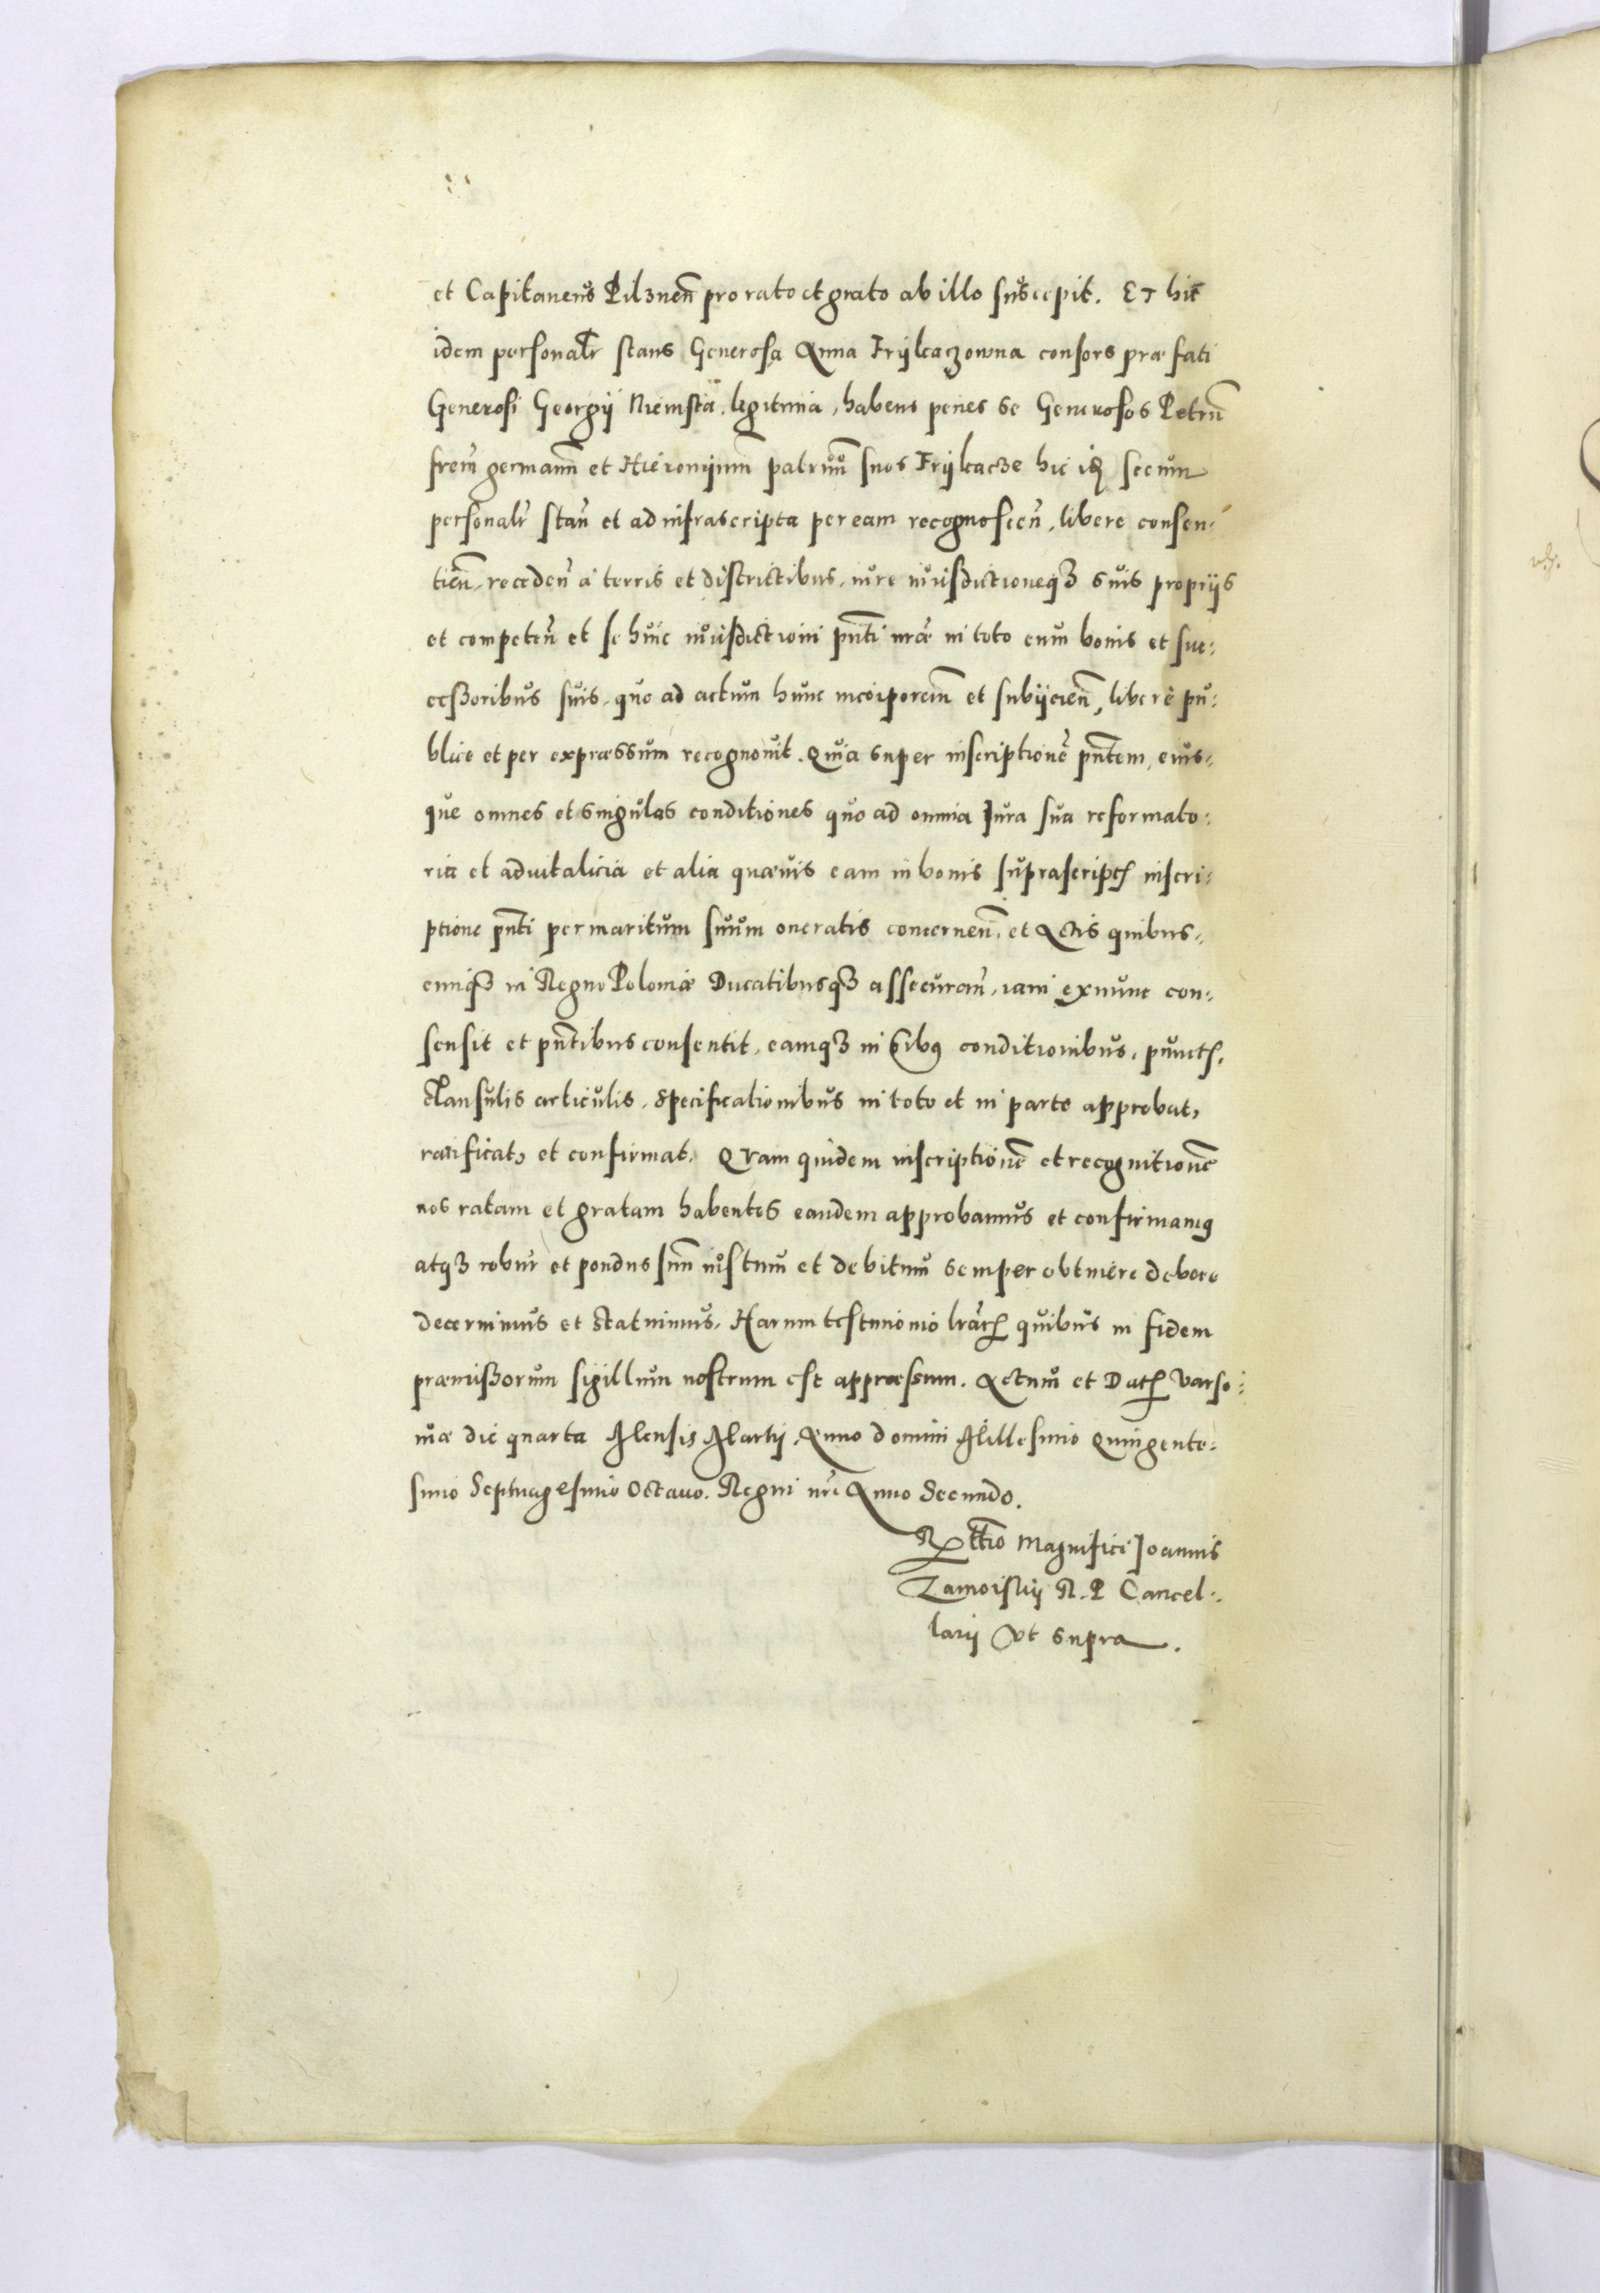 et Capitaneus Pilznen̄ pro rato et grato ab illo suscepit. Et hic
idem personalr̄ stans Generosa Anna Frÿkaczowna consors præfati
Generosi Georgÿ Niemsta, legitima, habens penes se Generosos Petrū
frem̄ germanū et Hieronÿmum patruū suos Frÿkacze hic secum
personalr̄ stan̄ et ad infrascripta per eam recognoscen̄, libere consen-
tien̄, receden̄ à terris et districtibus, iure iurisdictioneqꝫ suis proprÿs
et competen̄ et se huic iurisdictioni pn̄ti nr̄æ in toto cum bonis et suc-
cessoribus suis, quo ad actum hunc incorporan̄ et subÿcien̄, liberè pu-
blice et per expraessum recognouit. Quia super inscriptionē pn̄tem, eius-
que omnes et singulas conditiones quo ad omnia Jura sua reformato-
ria et aduitalicia et alia quæuis eam in bonis suprascriptis inscri-
ptione pn̄ti per maritum suum oneratis concernen̄, et Actis quibus-
cunqꝫ in Regno Poloniæ Ducatibusqꝫ assecuran̄, iam exnunc con-
sensit et pn̄tibus consentit, eamqꝫ in oībꝰ conditionibus, punctis,
Clausulis articulis, Specificationibus in toto et in parte approbat,
ratificat, et confirmat. Quam quidem inscriptionē et recognitionē
nos ratam et gratam habentes eandem approbamus et confirmamꝰ
atqꝫ robur et pondus suū iustum et debitum semper obtinere debere
decernimus et statuimus, Harum testimonio lr̄arꝝ quibus in fidem
præmissorum sigillum nostrum est appraessum. Actum et Datꝝ Varso-
uiæ die quarta Mensis Martÿ, Anno domini Millesimo Quingente-
simo Septuagesimo Octauo. Regni nr̄i Anno Secundo.
Magnifici Joannis
Zamoiskÿ R. P. Cancel-
larÿ Vt supra.